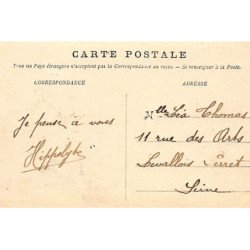 CARTE POSTALE
Tous les Pays étrangers n'acceptent pas la Correspondance au recto. — Se renseigner à la Poste.
CORRESPONDANCE
ADRESSE
Je pense à vous
Hippolyte
Mlle Léa Thomas
11 rue des Arts
Levallois Perret
Seine